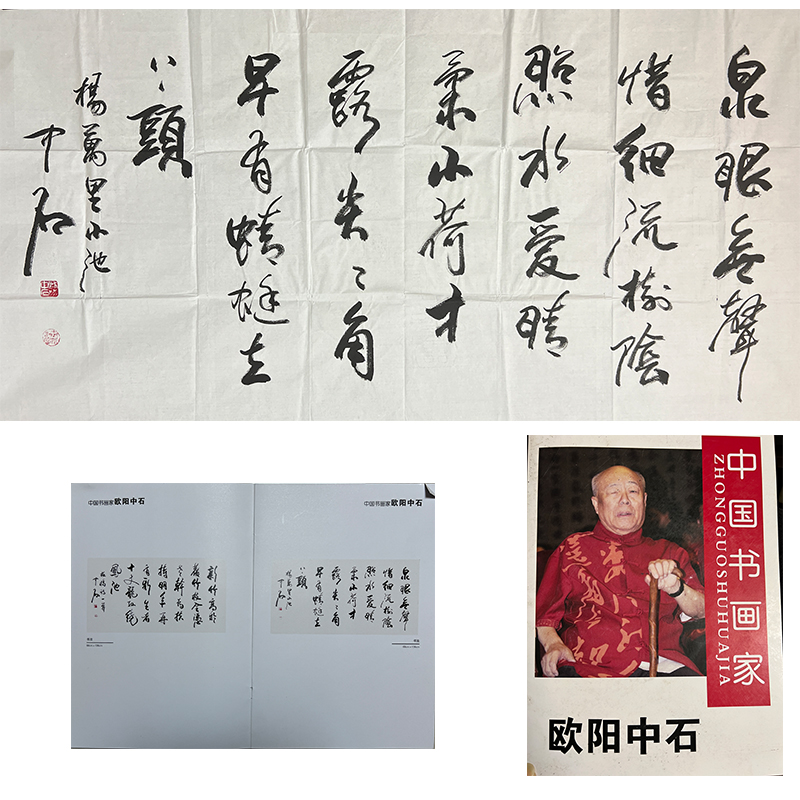 泉眼無聲
惜細流樹陰
照水愛晴
柔小荷才
露尖〻角
早有蜻蜓立
上頭
楊萬里小池
中石
中国书画家欧阳中石
新竹高於
舊竹枝全憑
老幹為扶
持明年再
有新生者
十丈龍孫繞
鳳池
中石
中国书画家欧阳中石
泉眼無聲
惜細流樹陰
照水愛晴
柔小荷才
露尖〻角
早有蜻蜓立
上頭
楊萬里小池
中石
中国书画家
ZHONGGUOSHUHUAJIA
欧阳中石